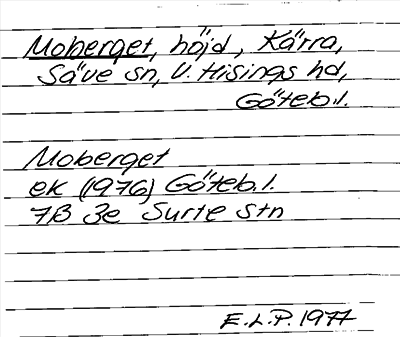 Moberget, höjd, Kärra,
Säve sn, V. Hisings hd,
Göteb.l.
Moberget
ek (1976) Göteb.l.
7B 3e Surte stn
E.L.P. 1977